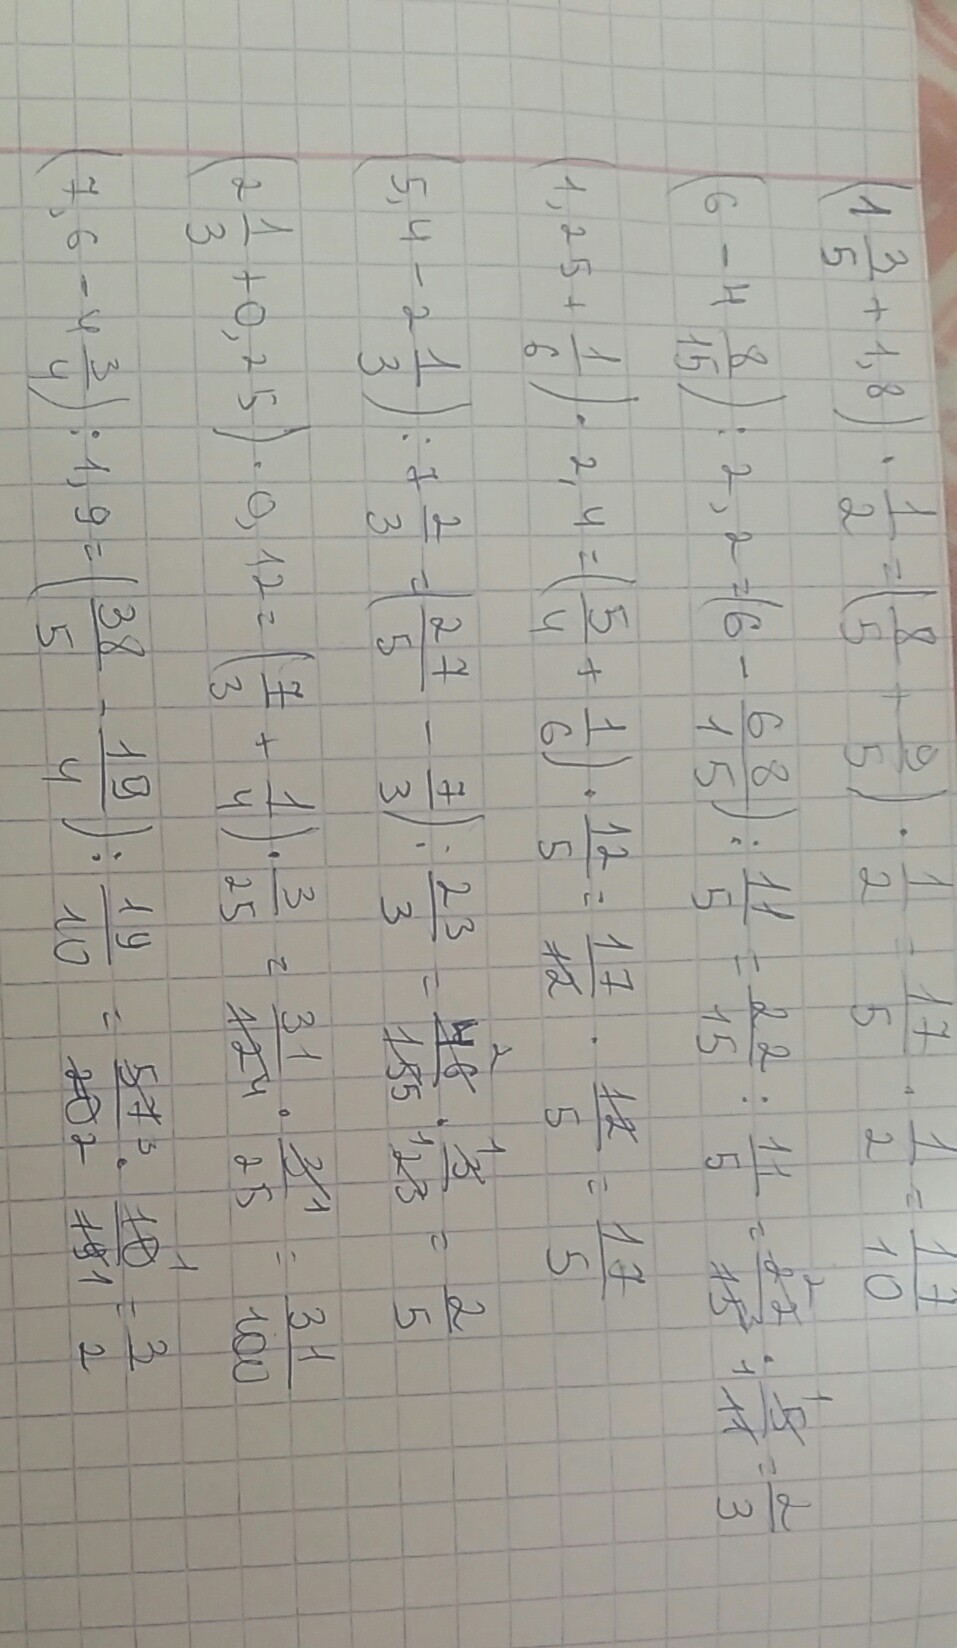 (1 3/5 + 1,8) · 1/2 = (8/5 + 9/5) · 1/2 = 17/5 · 1/2 = 17/10
(6 - 4 8/15) : 2,2 = (6 - 68/15) : 11/5 = 22/15 : 11/5 = 22/15 · 5/11 = 2/3
(1,25 + 1/6) · 2,4 = (5/4 + 1/6) · 12/5 = 17/12 · 12/5 = 17/5
(5,4 - 2 1/3) : 7 2/3 = (27/5 - 7/3) : 23/3 = 46/15 · 3/23 = 2/5
(2 1/3 + 0,25) · 0,12 = (7/3 + 1/4) · 3/25 = 31/12 · 3/25 = 31/100
(7,6 - 4 3/4) : 1,9 = (38/5 - 19/4) : 19/10 = 57/20 · 10/19 = 3/2